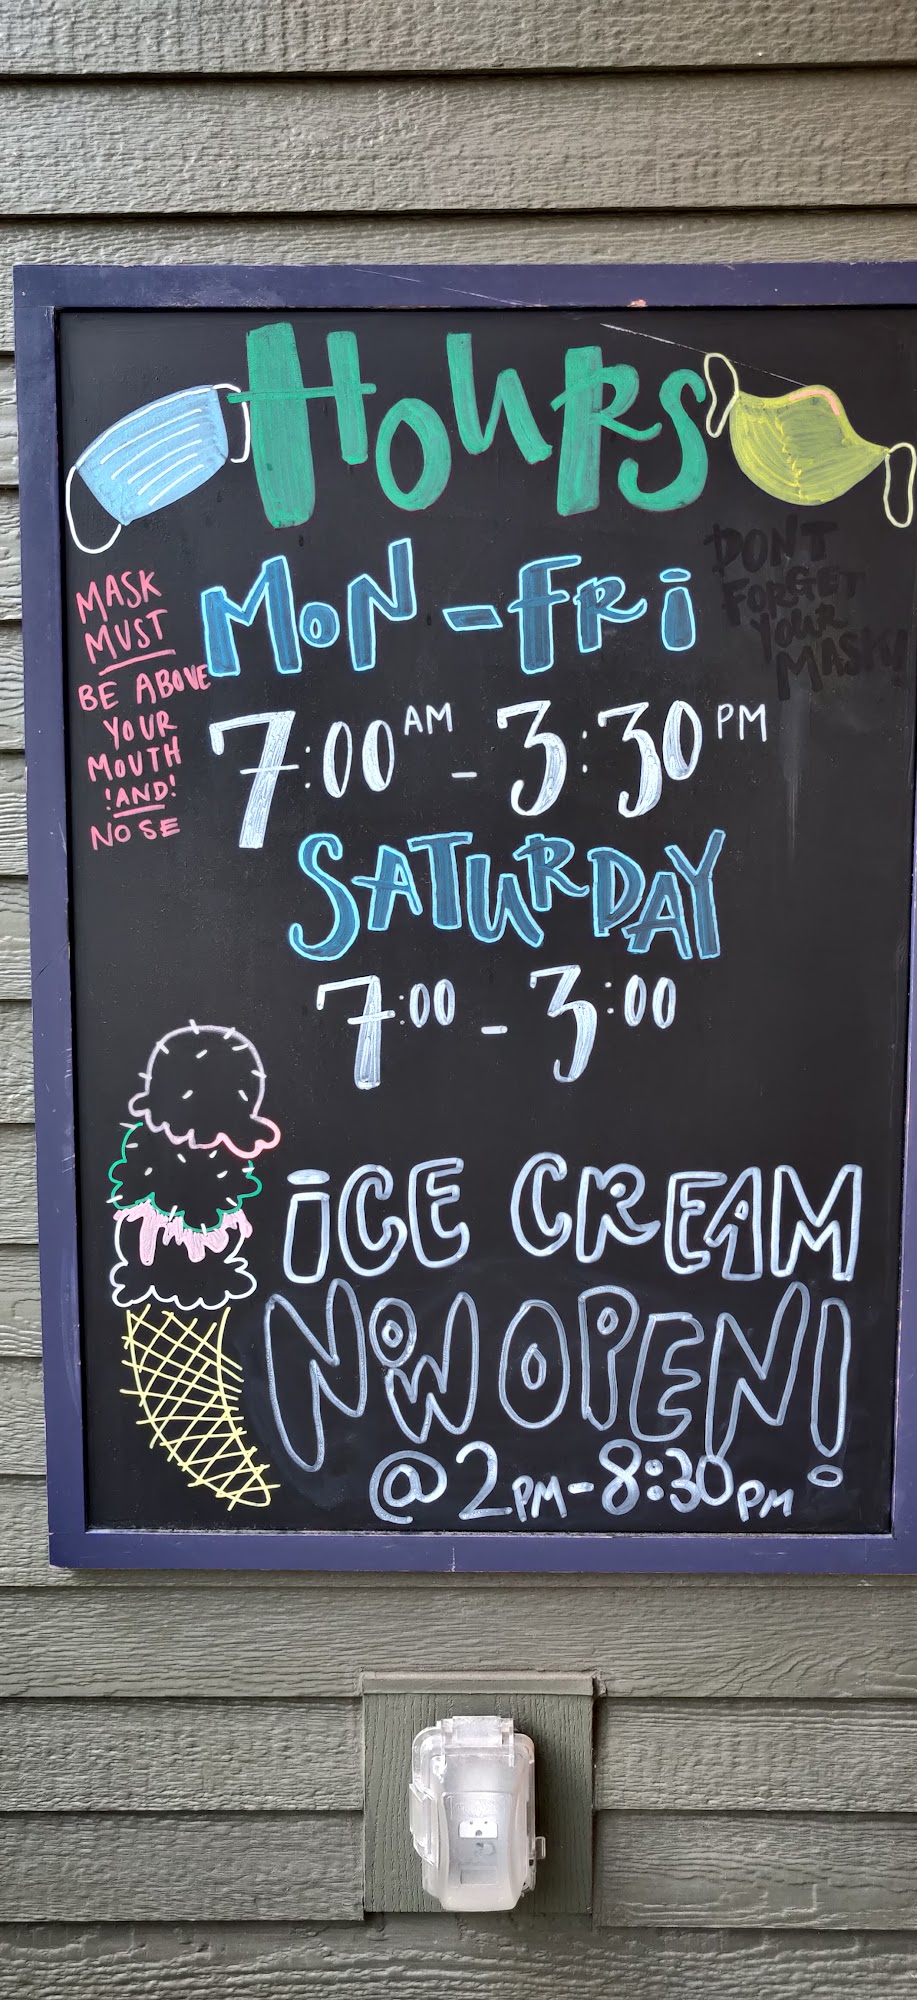 HOURS
MON-FRI
7:00AM - 3:30PM
SATURDAY
7:00 - 3:00
MASK
MUST
BE ABOVE
YOUR
MOUTH
!AND!
NOSE
DONT
FORGET
YOUR
MASK!
ICE CREAM
NOW OPEN!
@ 2PM-8:30PM